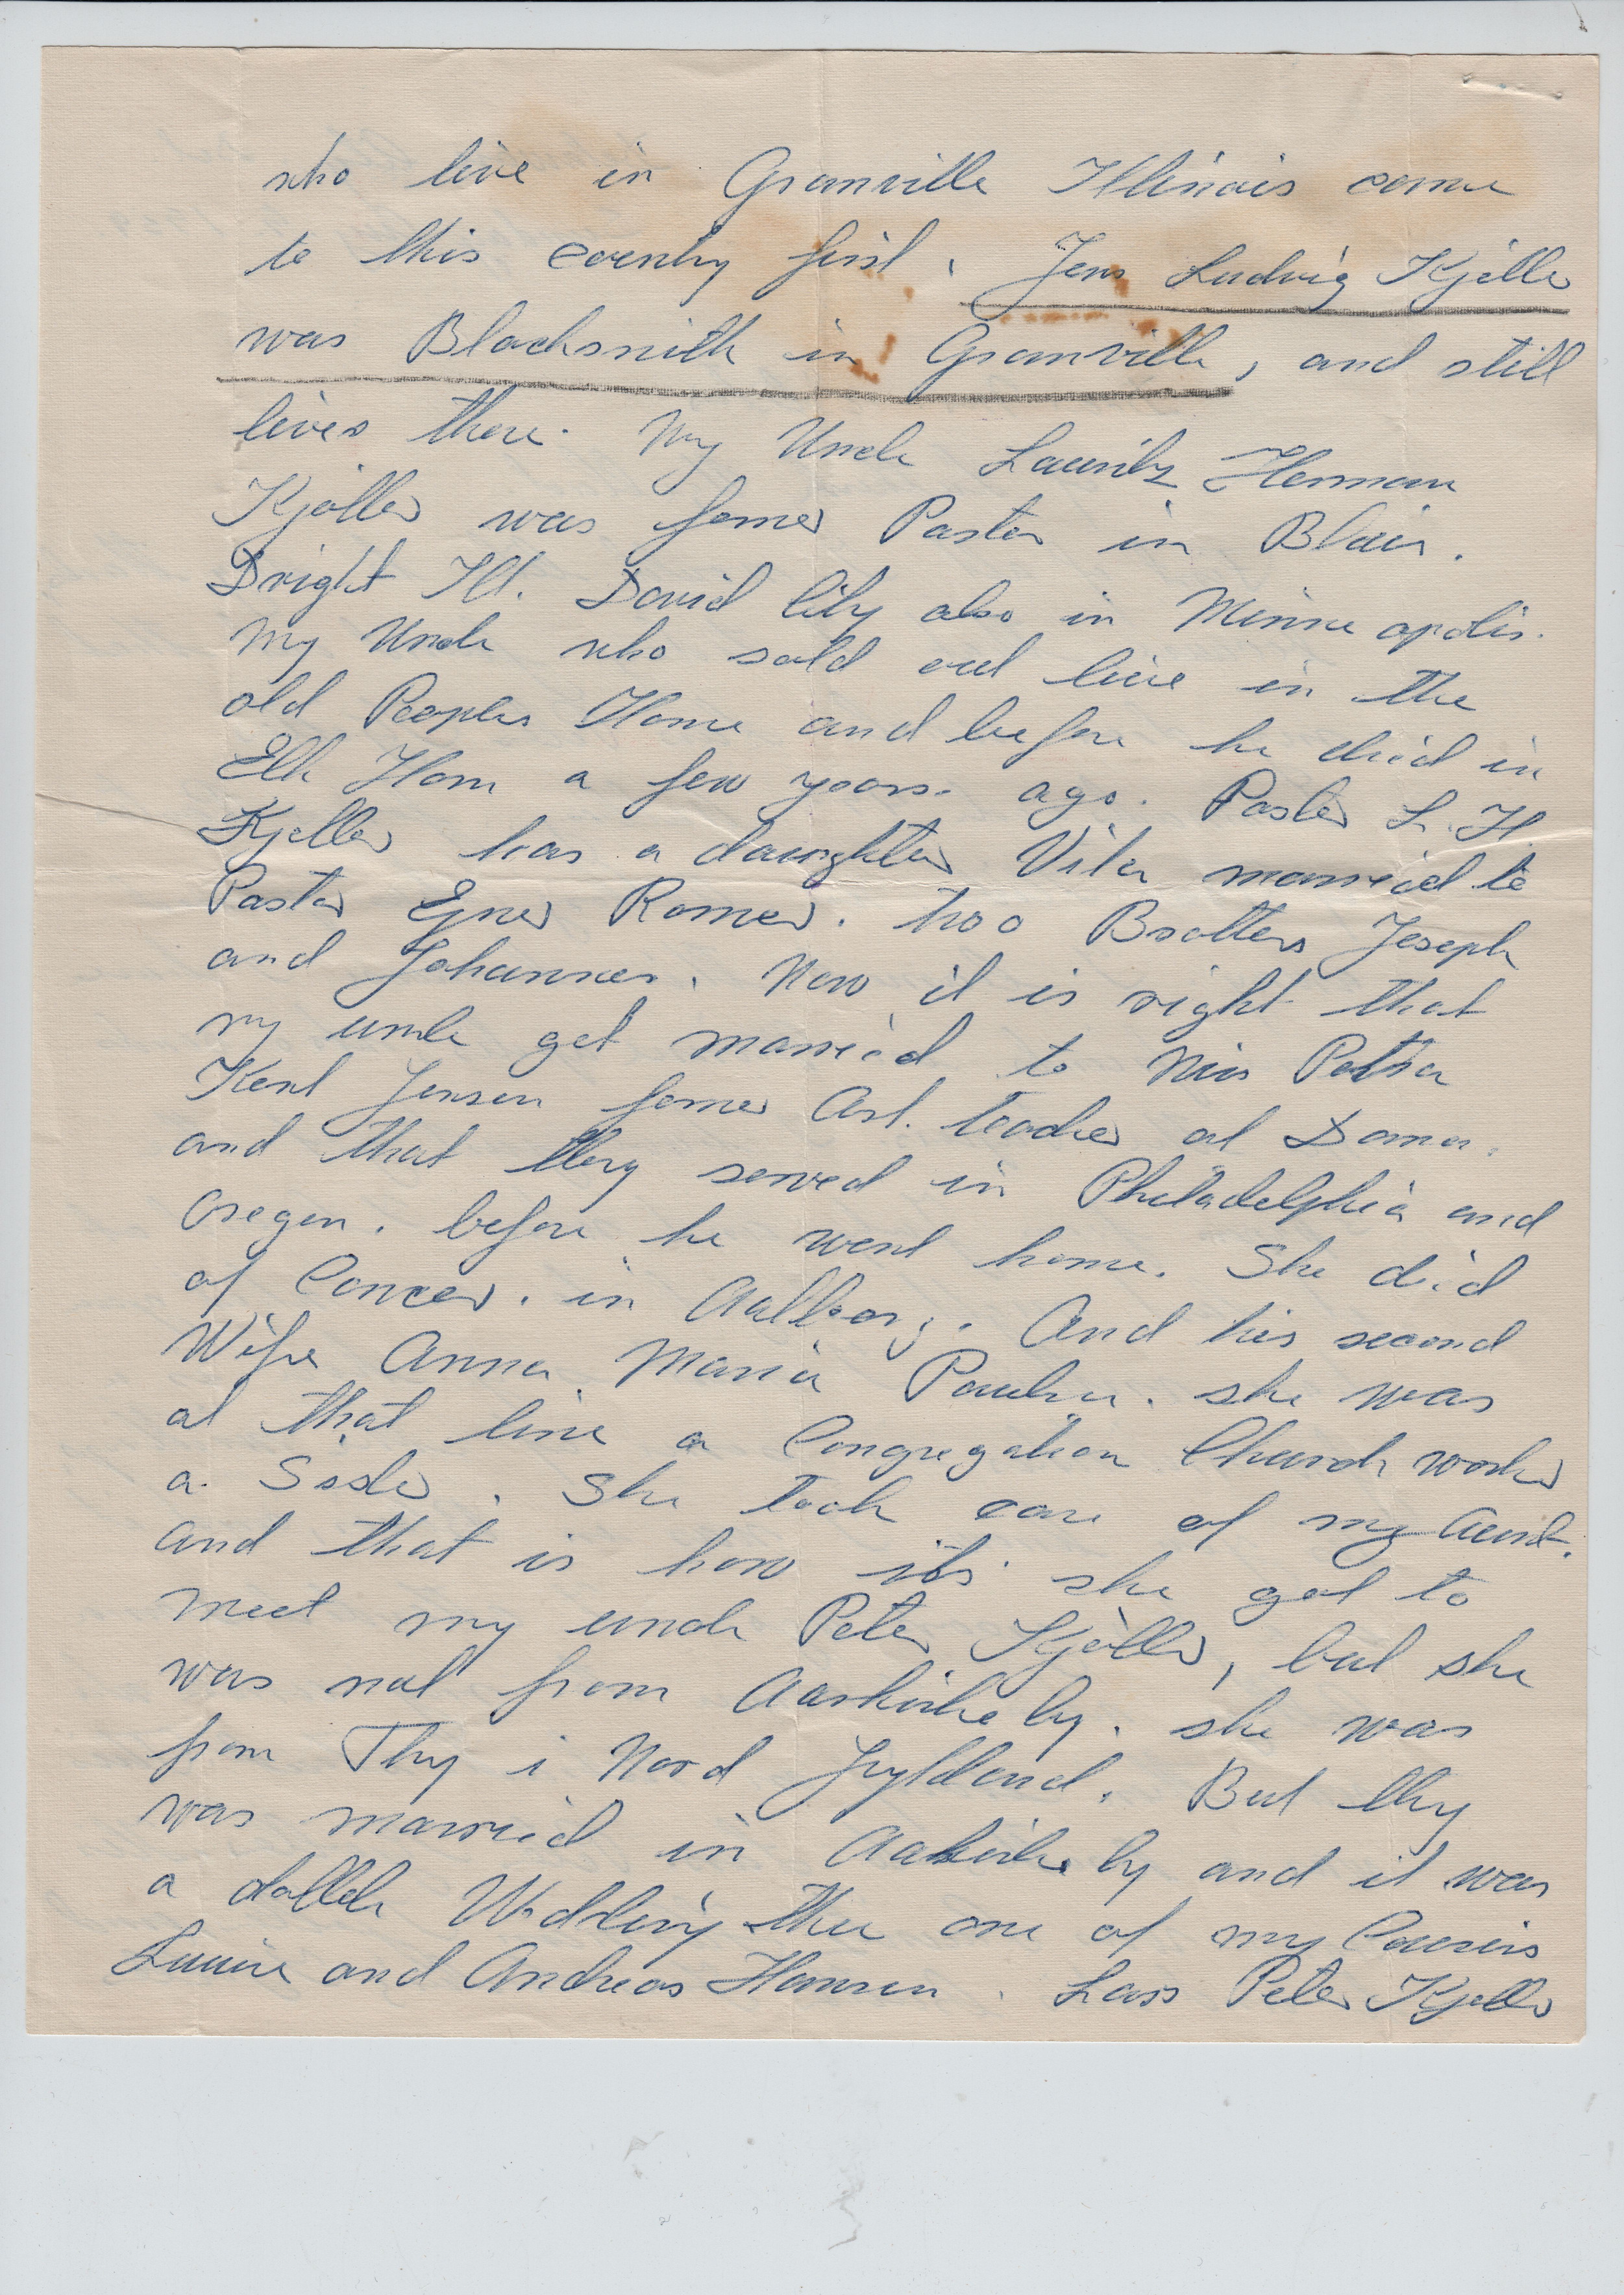 who live in Granville Illinois came
to this country first. Jens Ludvig Kjøller
was Blacksmith in Granville, and still
lives there. My Uncle Lauritz Herman
Kjøller was former Pastor in Blair.
Dwight Ill. David City also in Minneapolis.
My Uncle who sold out live in the
old Peoples Home and before he died in
Elk Horn a few years ago. Pastor L. H.
Kjøller has a daughter married to
Pastor Romer. two Brothers Joseph
and Johannes. Now it is right that
my uncle get married to Miss Petra
Jensen former Art. teacher at Dana.
and that they served in Philadelphia and
Oregon. before he went home. She died
of Cancer. in Aalborg. And his second
Wife Anna Maria she was
at that time a Congregation Church worker
a. Sister. She took care of my Aunt.
and that is how its she got to
meet my uncle Peter Kjøller, but she
was not from Aaskirkeby. she was
from Thy i Nord Jylland. But they
was married in Aakirkeby and it was
a dobbelt Wedding the one of my Cousins
and Andreas Hansen. Lars Peter Kjøller